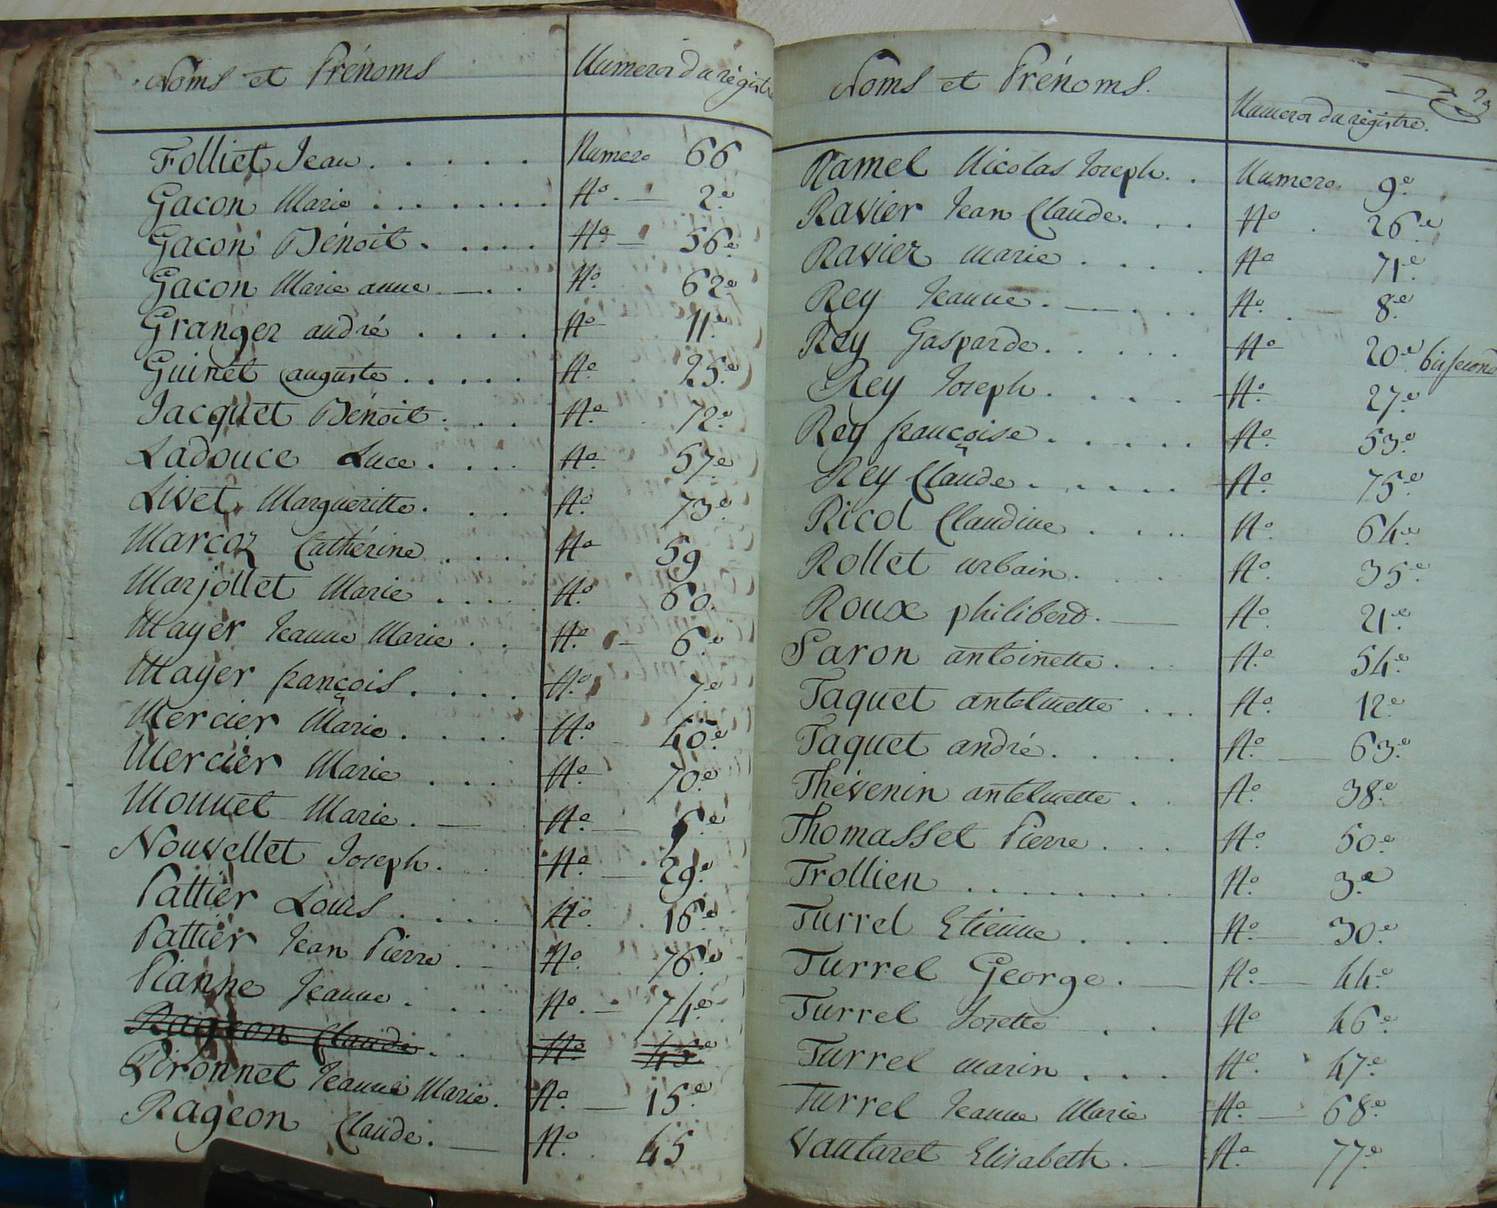 Noms et Prénoms Numeros du régistre
Folliet Jean. . . . . . Numero 66
Gacon Marie . . . . . . . . No. — 2.e
Gacon Bénoit. . . . . . No — 56.e
Gacon Marie anne — . . No. 62.e
Granger andré . . . . No 11.e
Guinet auguste . . . . . No. 25.e
Jacquet Bénoit. . . No. 72.e
Ladouce Luce . . . . No. 57.e
Livet Margueritte. . . No. 73.e
Marcoz Cathérine . . . No 59
Marjollet Marie . . . . No. 60.
Mayer Jeanne Marie . . No. — 6.e
Mayer françois . . . . No. 7.e
Mercier Marie . . . . No. 40.e
Mercier Marie . . . No. 70.e
Monnet Marie . — No. —
Nouvellet Joseph. . . No. — 29.e
Pattier Louis . . . . No. 16.e
Pattier Jean Pierre . — No. 76.e
Pianne Jeanne . . . No. — 74.e
Rageon Claude . . . No.
Pironnet Jeanne Marie. No. — 15.e
Rageon Claude. — No. 45
Noms et Prénoms.
Numeros du régistre.
Ramel Nicolas Joseph. . Numero 9.e
Ravier Jean Claude. . . No . 26.e
Ravier marie . . . . No 71.e
Rey Jeanne. — . . . No. . 8.e
Rey Gasparde. . . . . No 20.e bis second
Rey Joseph . . . . No. 27.e
Rey françoise . . . . . No. 53.e
Rey Claude . . . . . No. 75.e
Ricol Claudine . . . . No. 64.e
Rollet urbain. . . No. 35.e
Roux philiberd. — No. 21.e
Saron antoinette . . . No. 54.e
Taquet antelmette . . . No. 12.e
Taquet andré. . . . . No. — 63.e
Thévenin antelmette . . No. 38.e
Thomasset Pierre . . . No. 50.e
Trollien . . . . . . . . No. 3.e
Turrel Etienne . . . No. — 30.e
Turrel George. — No. — 44.e
Turrel Josette . . No 46.e
Turrel marin . . . . No. 47.e
Turrel Jeanne Marie No. — 68.e
Vautaret Elisabeth . — No. 77.e